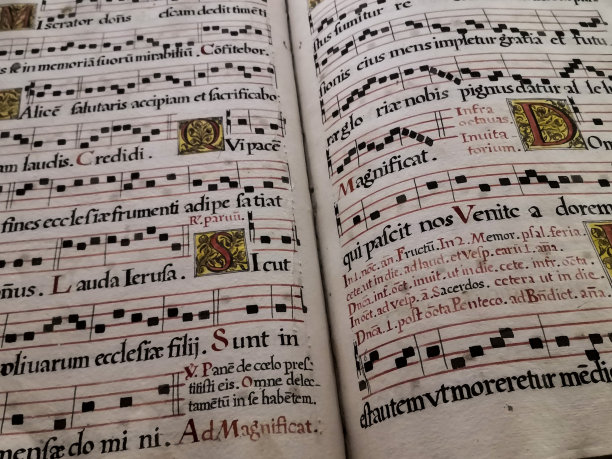 Iserator doñs escam dedit timēti
us se in memoriā suorū mirabiliū. Cōfitebor.
Alicē salutaris accipiam et sacrificabo
am laudis. Credidi. QVi pacē
fines ecclesiæ frumenti adipe satiat
R̷. paruū.
ñus. Lauda Ierusa. SIcut
oliuarum ecclesiæ filij. Sunt in
V̷. Panē de cœlo pres-
titisti eis. Omne delec-
tamētū in se habētem.
mensæ do mi ni. Ad Magnificat.
sumitur re
mens impletur gratia et futu
rionis eius
ræ glo riæ nobis pignus datur al le
Infra
octauas
Inuita
torium.
Magnificat. DOm
qui pascit nos Venite adorem
In I. noc. añ. Fructū. In 2. Memor. psal. feria.
cete. ut in die. ad laud. et vesp. earū I. ana.
Dñca. inf. oct. inuit. ut in die. cete. infr. octa.
In oct. ad vesp. a. Sacerdos. cetera ut in die.
Dñca. I. post octa Penteco. ad Bñdict. aña.
est autem vt moreretur mēdi